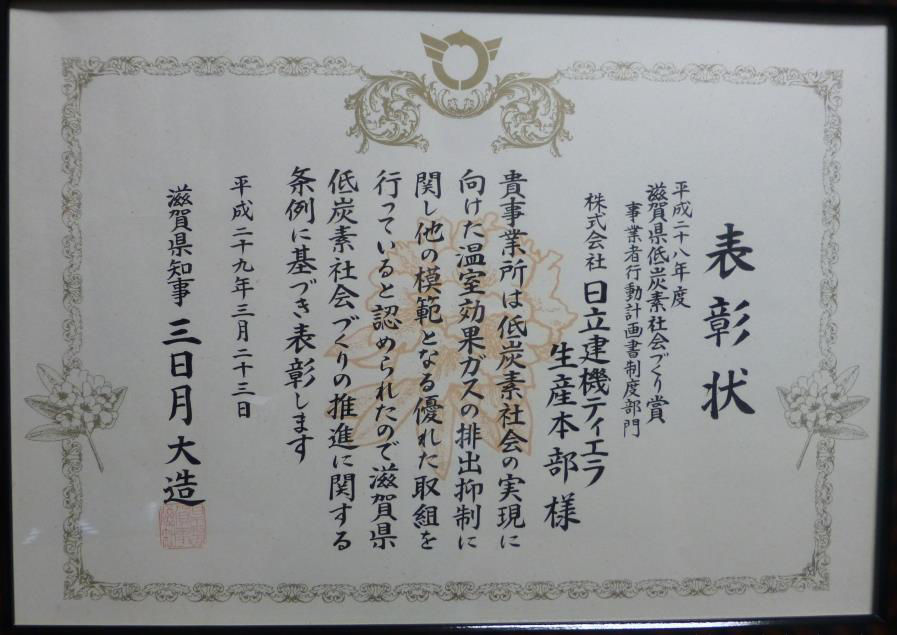 表彰状
平成二十八年度
滋賀県低炭素社会づくり賞
事業者行動計画書制度部門
株式会社 日立建機ティエラ
生産本部 様
貴事業所は低炭素社会の実現に
向けた温室効果ガスの排出抑制に
関し他の模範となる優れた取組を
行っていると認められたので滋賀県
低炭素社会づくりの推進に関する
条例に基づき表彰します
平成二十九年三月二十三日
滋賀県知事 三日月 大造